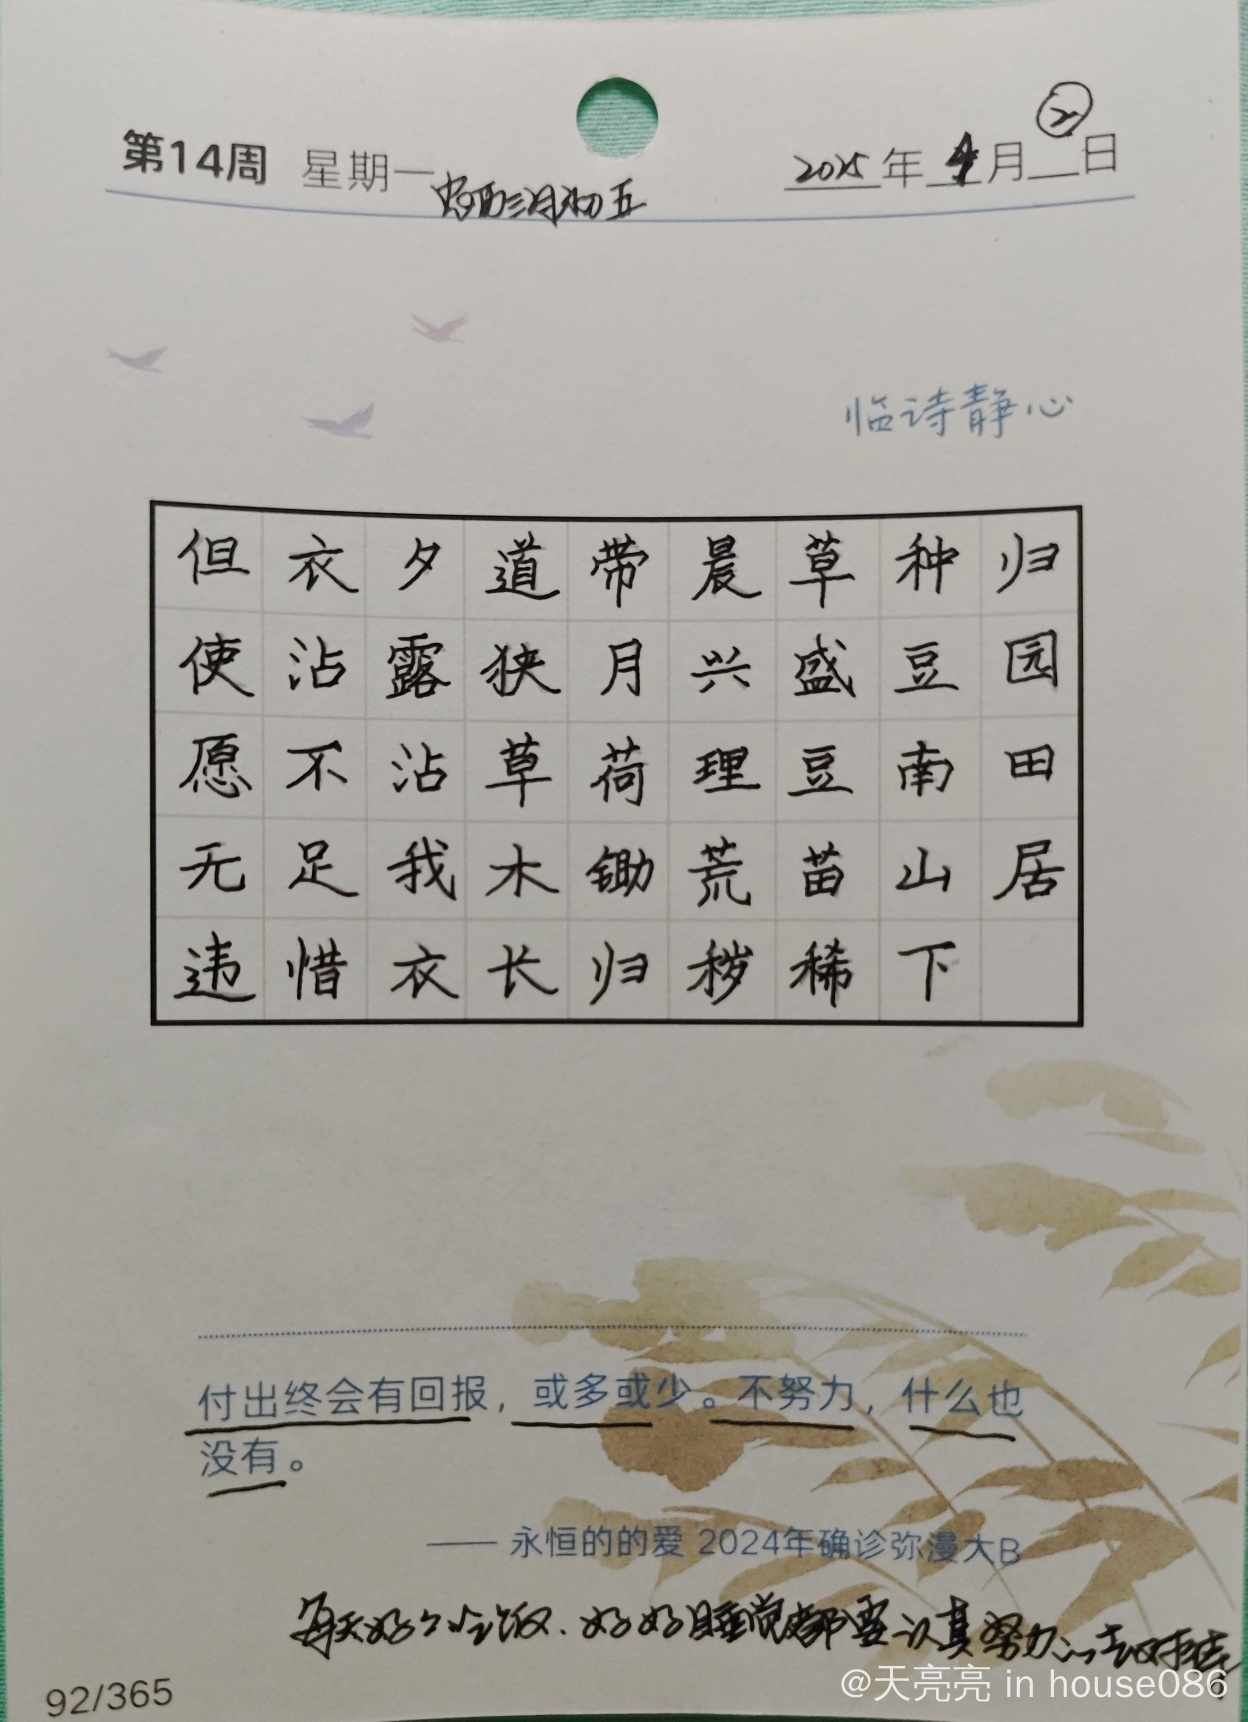 第14周 星期一
三月初五
2025年4月2日
临诗静心
归园田居
种豆南山下
草盛豆苗稀
晨兴理荒秽
带月荷锄归
道狭草木长
夕露沾我衣
衣沾不足惜
但使愿无违
付出终会有回报，或多或少。不努力，什么也
没有。
—— 永恒的的爱 2024年确诊弥漫大B
每天好好吃饭.好好睡觉都要认真努力
92/365
@天亮亮 in house086